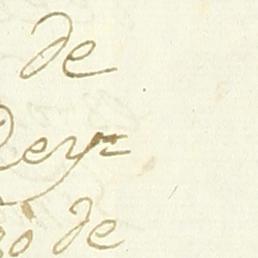 de
Rey
de